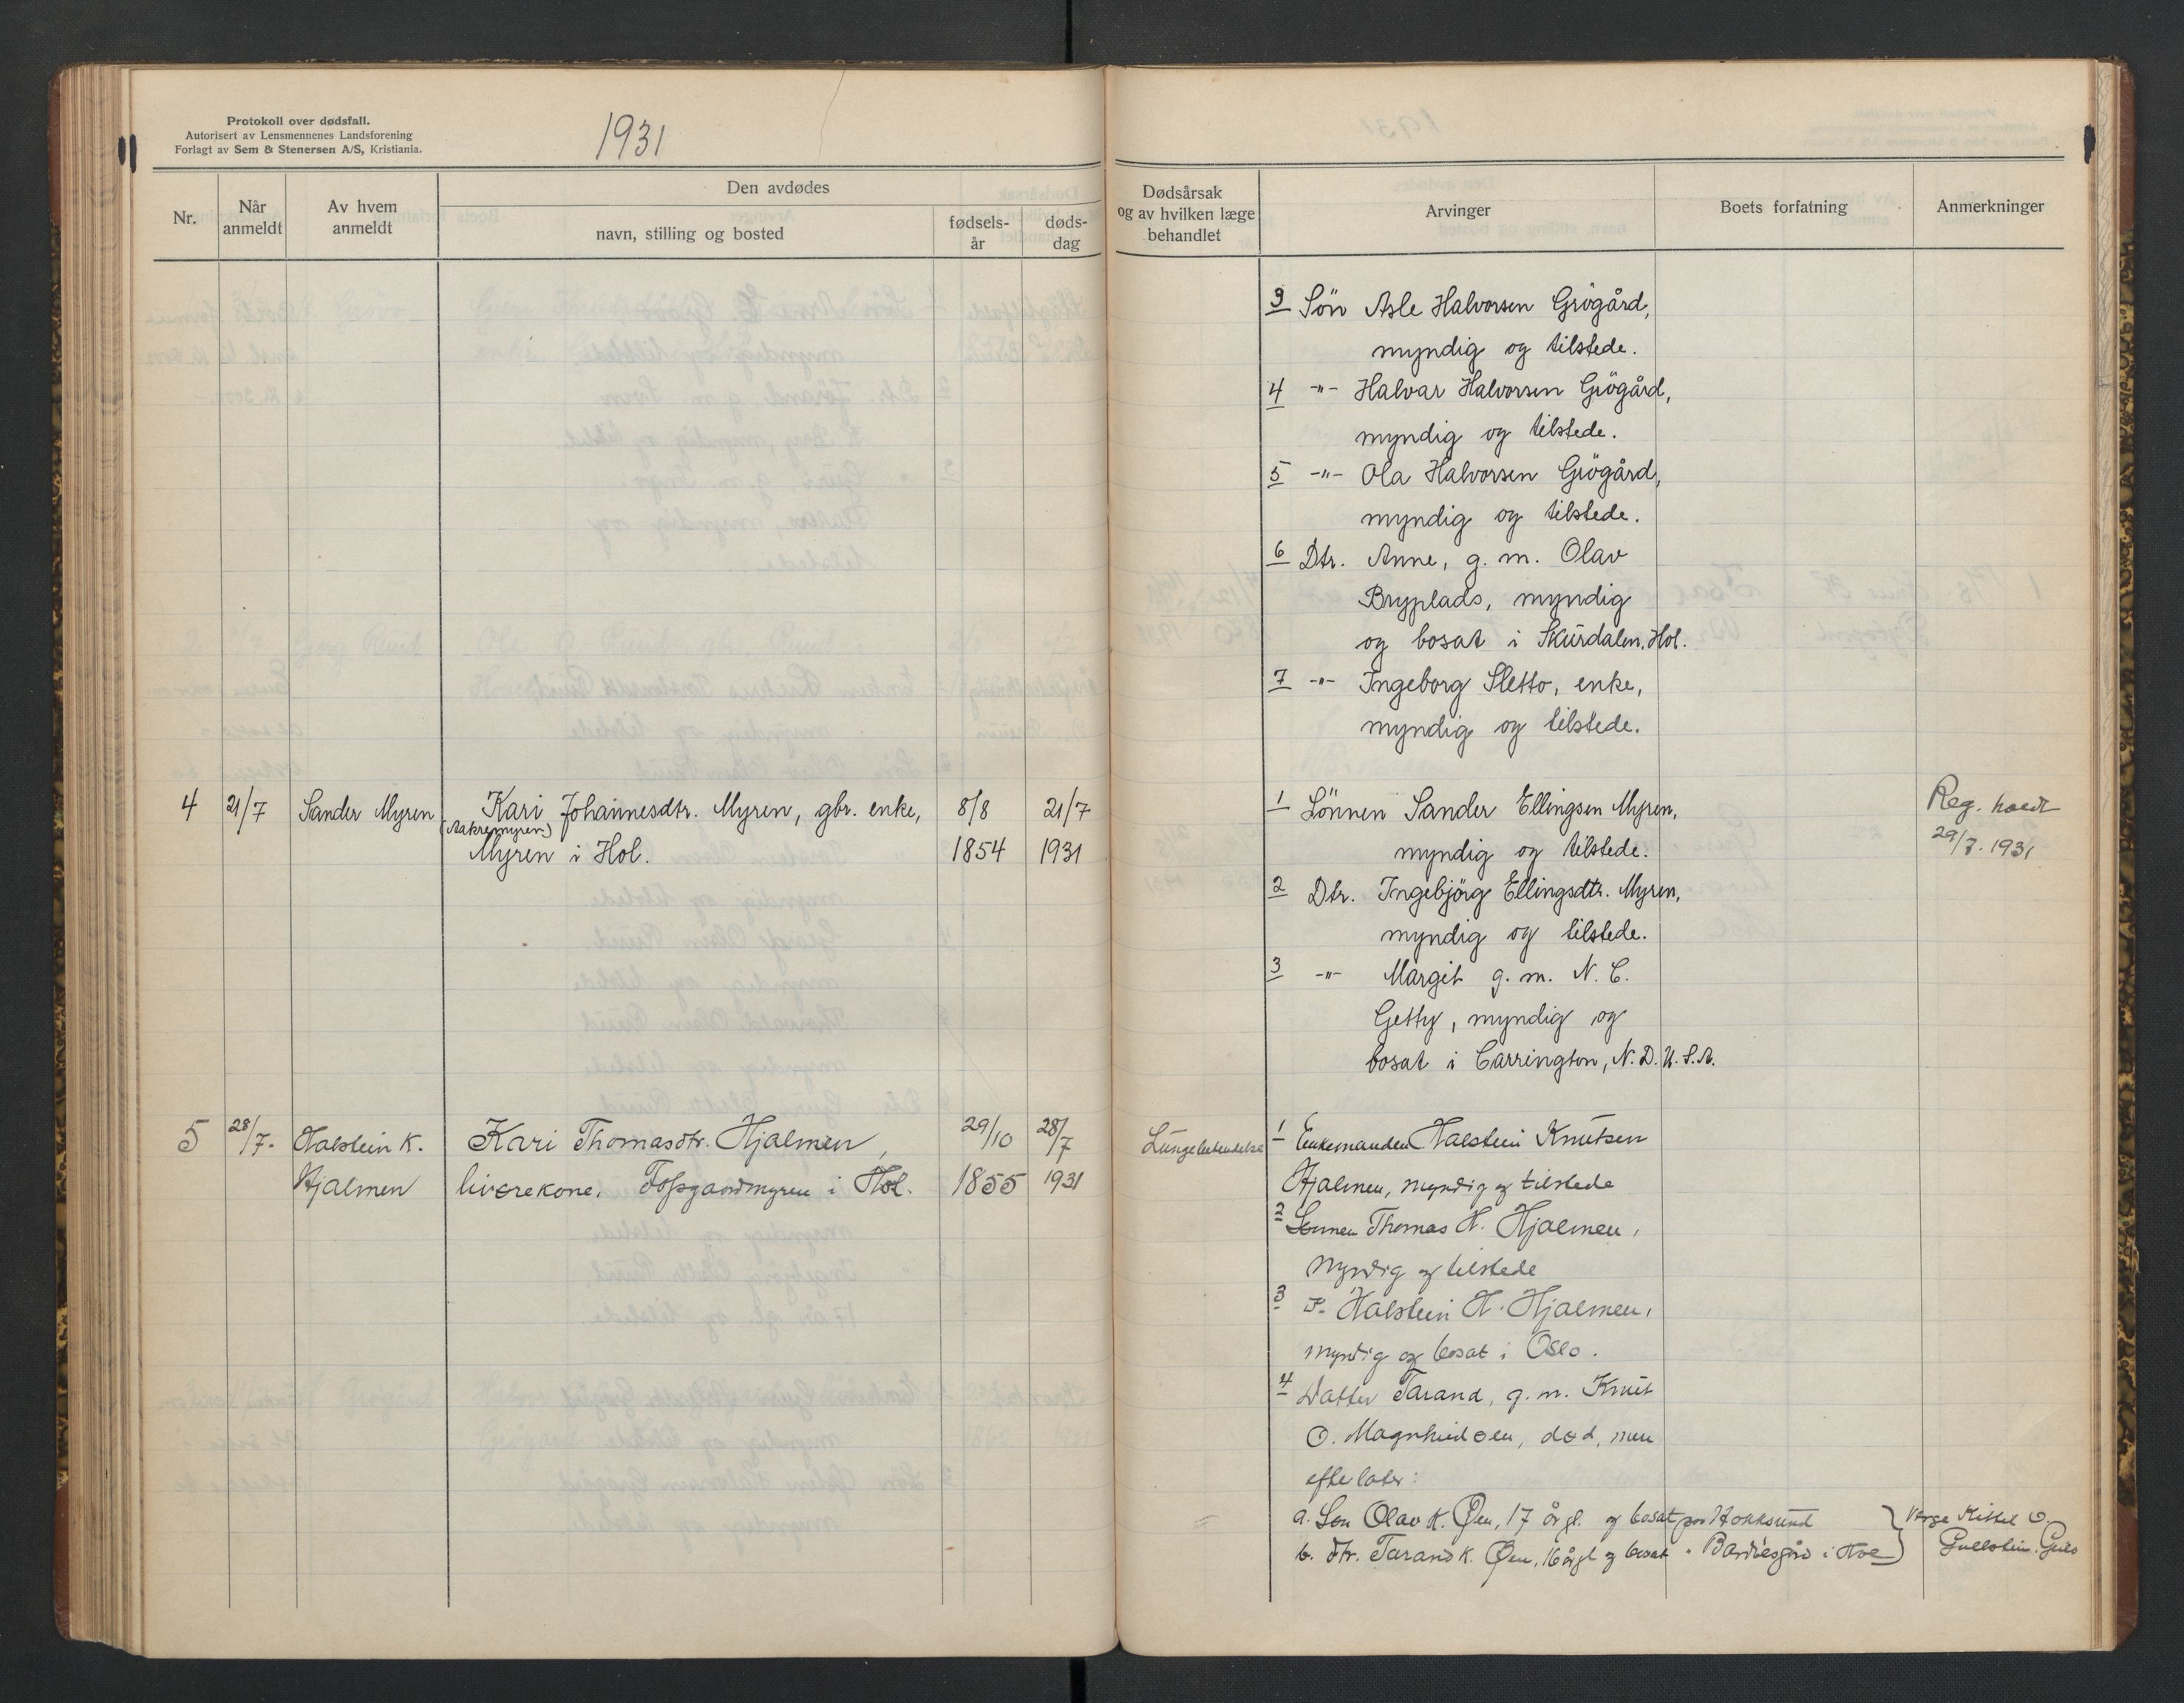 Protokoll over dødsfall.
Autorisert av Lensmennenes Landsforening
Forlagt av Sem & Stenersen A/S, Kristiania.
1931
Nr.
Når anmeldt
Av hvem anmeldt
Den avdødes
navn, stilling og bosted
fødsels-år
døds-dag
Dødsårsak og av hvilken læge behandlet
Arvinger
Boets forfatning
Anmerkninger
3 Søn Asle Halvorsen Grøgård,
myndig og tilstede.
4 -"- Halvar Halvorsen Grögård,
myndig og tilstede.
5 -"- Ola Halvorsen Grögård,
myndig og tilstede.
6 Dtr. Anne, g. m. Olav
Bryplads, myndig
og bosat i Skurdalen. Hol.
7 -"- Ingeborg Sletto, enke,
myndig og tilstede.
4 21/7 Sander Myren Kari Johannesdtr. Myren, gbr. enke, 8/8 21/7
(Aakremyren)
Myren i Hol. 1854 1931
1 Sönnen Sander Ellingsen Myren,
myndig og tilstede.
2 Dtr. Ingebjörg Ellingsdtr. Myren,
myndig og tilstede.
3 -"- Margit g. m. N. C.
Getty, myndig og
bosat i Carrington, N. D. U. S. A.
Reg. holdt
29/7. 1931
5 28/7. Halstein K. Kari Thomasdtr. Hjalmen, 29/10 28/7
Hjalmen livørekone. Fossgaardmyren i Hol. 1855 1931
Lungebetendelse
1 Enkemanden Halstein Knutsen
Hjalmen, myndig og tilstede
2 Sønnen Thomas H. Hjalmen,
myndig og tilstede
3 Halstein H. Hjalmen,
myndig og bosat i Oslo.
4 Datter Tarand, g. m. Knut
O. død, men
efterlater:
a. Søn Olav K. Øen, 17 år gl. og bosat paa Hokksund
b. Dtr. Tarand K. Øen, 16 år gl og bosat " Bardøsgård i Hol
Verge Kittel O.
Gullstein. Geilo